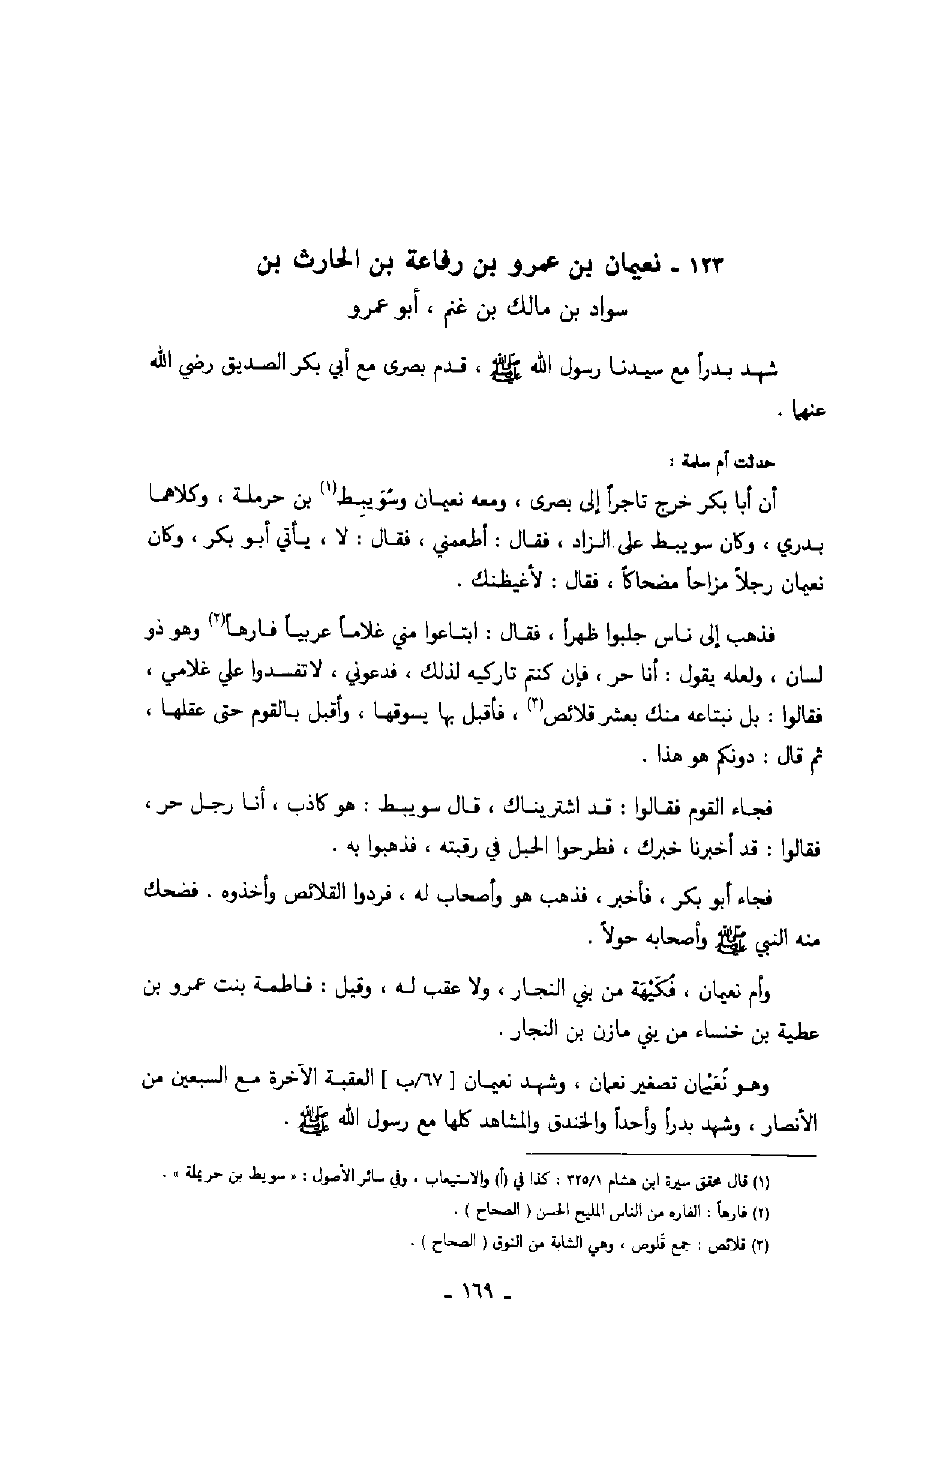 ١٢٣ ـ نعيمان بن عمرو بن رفاعة بن الحارث بن
سواد بن مالك بن غنم ، أبو عمرو
شهد بدراً مع سيدنا رسول الله ﷺ ، قدم بصرى مع أبي بكر الصديق رضي الله
عنهما .
حدثت أم سلمة :
أن أبا بكر خرج تاجراً إلى بصرى ، ومعه نعيمان وسُوَيبِط(١) بن حرملة ، وكلاهما
بدري ، وكان سويبط على الزاد ، فقال : أطعمني ، فقال : لا ، يأتي أبو بكر ، وكان
نعيمان رجلاً مزاحاً مضحاكاً ، فقال : لأغيظنك .
فذهب إلى ناس جلبوا ظهراً ، فقال : ابتاعوا مني غلاماً عربياً فارهاً(٢) وهو ذو
لسان ، ولعله يقول : أنا حر ، فإن كنتم تاركيه لذلك ، فدعوني ، لاتفسدوا علي غلامي ،
فقالوا : بل نبتاعه منك بعشر قلائص(٣) ، فأقبل بها يسوقها ، وأقبل بالقوم حتى عقلها ،
ثم قال : دونكم هو هذا .
فجاء القوم فقالوا : قد اشتريناك ، قال سويبط : هو كاذب ، أنا رجل حر ،
فقالوا : قد أخبرنا خبرك ، فطرحوا الحبل في رقبته ، فذهبوا به .
فجاء أبو بكر ، فأخبر ، فذهب هو وأصحاب له ، فردوا القلائص وأخذوه . فضحك
منه النبي ﷺ وأصحابه حولاً .
وأم نعيمان ، فُكَيْهَة من بني النجار ، ولا عقب له ، وقيل : فاطمة بنت عمرو بن
عطية بن خنساء من بني مازن بن النجار .
وهو نُعَيْمان تصغير نعمان ، وشهد نعيمان [ ٦٧/ب ] العقبة الآخرة مع السبعين من
الأنصار ، وشهد بدراً وأحداً والخندق والمشاهد كلها مع رسول الله ﷺ .
(١) قال محقق سيرة ابن هشام ٣٢٥/١ : كذا في (أ) والاستيعاب ، وفي سائر الأصول : « سويط بن حريملة » .
(٢) فارهاً : الفاره من الناس المليح الحسن ( الصحاح ) .
(٣) قلائص : جمع قَلوص ، وهي الشابة من النوق ( الصحاح ) .
ـ ١٦٩ ـ